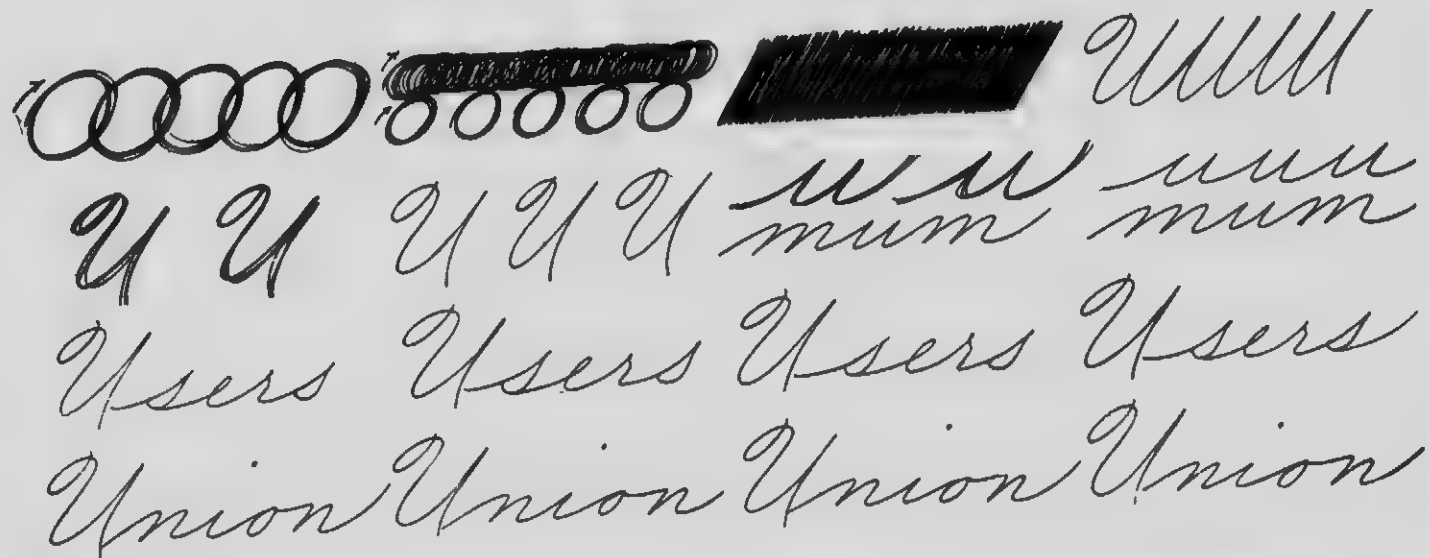 U U U U U u u uuu
mum mum
Users Users Users Users
Union Union Union Union